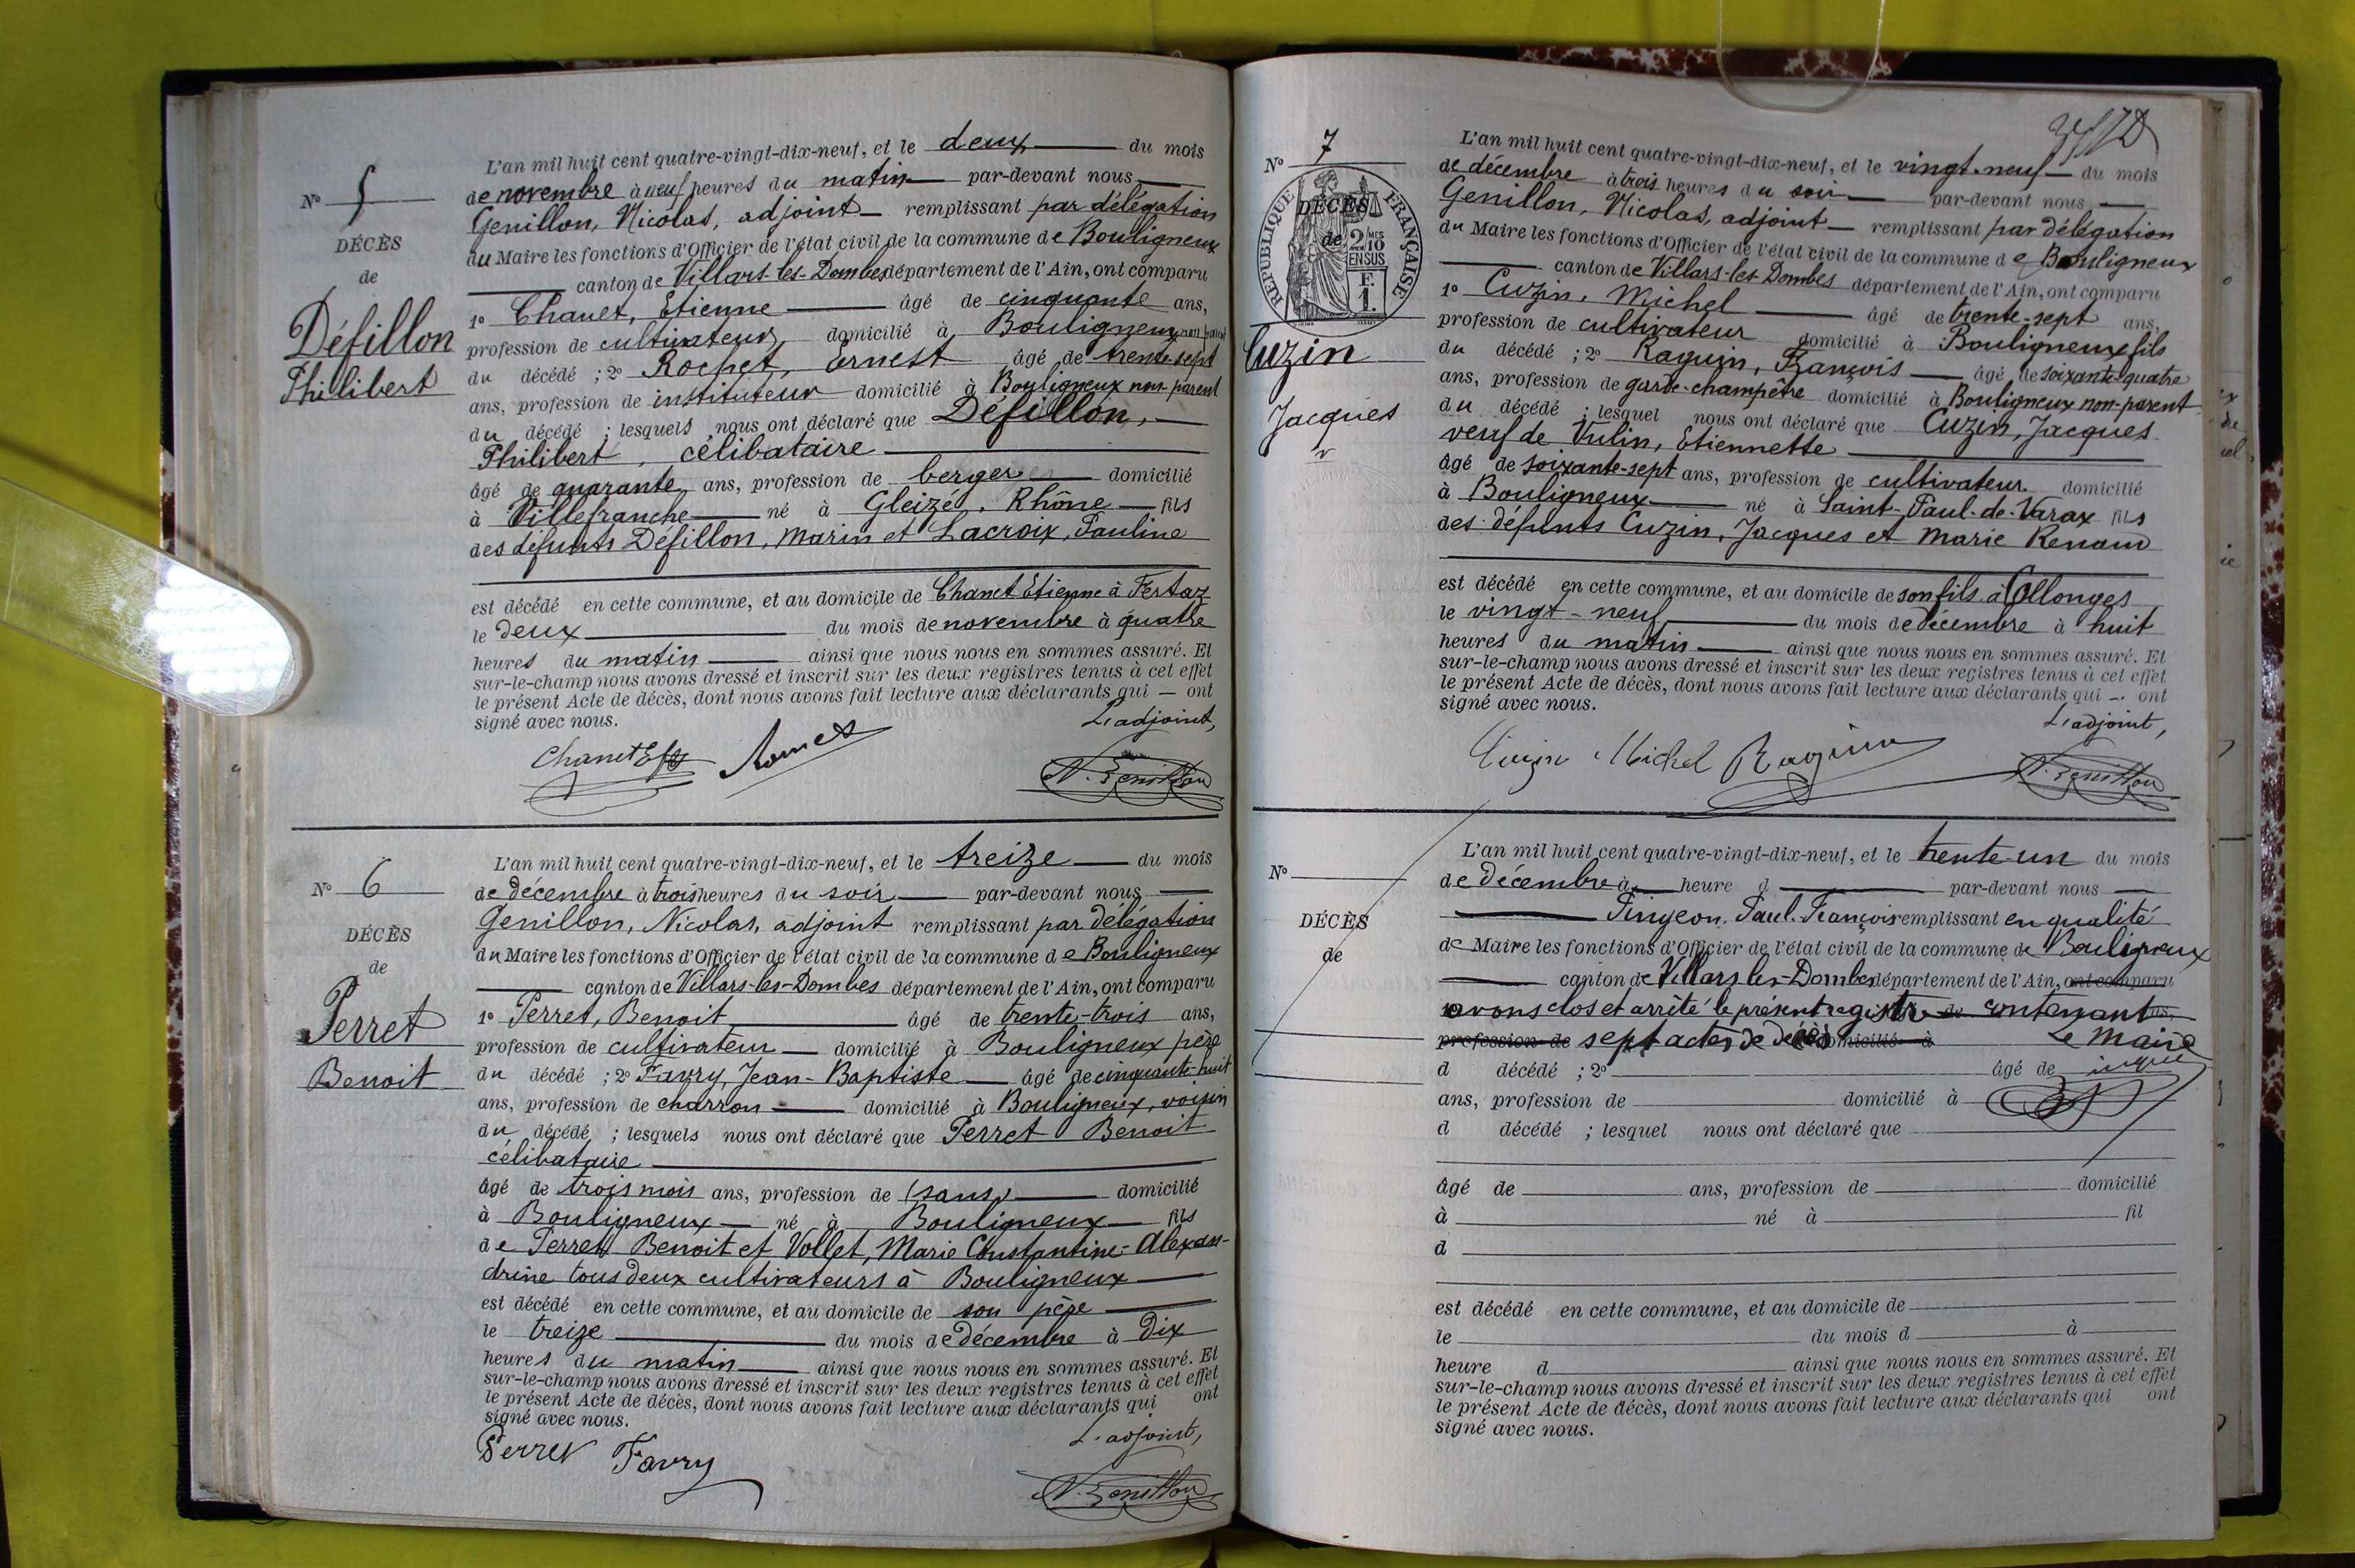 L'an mil huit cent quatre-vingt-dix-neuf, et le deux du mois
Nº 5
de novembre à neuf heures du matin par-devant nous
Genillon, Nicolas, adjoint remplissant par délégation
DÉCÈS
du Maire les fonctions d'Officier de l'état civil de la commune de Bouligneux
de
canton de Villars-les-Dombes département de l'Ain, ont comparu
Défillon
Philibert
1º Chanet, Etienne âgé de cinquante ans,
profession de cultivateur domicilié à Bouligneux
du décédé ; 2º Rochet, Ernest âgé de trente-sept
ans, profession de instituteur domicilié à Bouligneux non-parent
du décédé ; lesquels nous ont déclaré que Défillon,
Philibert, célibataire
âgé de quarante ans, profession de berger domicilié
à Villefranche né à Gleizé, Rhône fils
des défunts Défillon, Marin et Lacroix, Pauline
est décédé en cette commune, et au domicile de Chanet Etienne à Fertaz
le deux du mois de novembre à quatre
heures du matin ainsi que nous nous en sommes assuré. Et
sur-le-champ nous avons dressé et inscrit sur les deux registres tenus à cet effet
le présent Acte de décès, dont nous avons fait lecture aux déclarants qui — ont
signé avec nous.
L'adjoint,
Chanet
N. Genillon
L'an mil huit cent quatre-vingt-dix-neuf, et le treize du mois
Nº 6
de décembre à trois heures du soir par-devant nous
Genillon, Nicolas, adjoint remplissant par délégation
DÉCÈS
du Maire les fonctions d'Officier de l'état civil de la commune de Bouligneux
de
canton de Villars-les-Dombes département de l'Ain, ont comparu
Perret
Benoit
1º Perret, Benoit âgé de trente-trois ans,
profession de cultivateur domicilié à Bouligneux père
du décédé ; 2º Favry, Jean-Baptiste âgé de cinquante-huit
ans, profession de charron domicilié à Bouligneux, voisin
du décédé ; lesquels nous ont déclaré que Perret Benoit
célibataire
âgé de trois mois ans, profession de (sans) domicilié
à Bouligneux né à Bouligneux fils
de Perret Benoit et Vollet, Marie Constantine-Alexan-
drine tous deux cultivateurs à Bouligneux
est décédé en cette commune, et au domicile de son père
le treize du mois de décembre à dix
heures du matin ainsi que nous nous en sommes assuré. Et
sur-le-champ nous avons dressé et inscrit sur les deux registres tenus à cet effet
le présent Acte de décès, dont nous avons fait lecture aux déclarants qui ont
signé avec nous.
L'adjoint,
Perret Favry
N. Genillon
L'an mil huit cent quatre-vingt-dix-neuf, et le vingt-neuf du mois
Nº 7
de décembre à trois heures du soir par-devant nous
Genillon, Nicolas, adjoint remplissant par délégation
DÉCÈS
de
RÉPUBLIQUE FRANÇAISE
2/10 MES EN SUS
E.
1.
du Maire les fonctions d'Officier de l'état civil de la commune de Bouligneux
canton de Villars-les-Dombes département de l'Ain, ont comparu
Cuzin
Jacques
1º Cuzin, Michel âgé de trente-sept ans,
profession de cultivateur domicilié à Bouligneux fils
du décédé ; 2º Raguin, François âgé de soixante-quatre
ans, profession de garde-champêtre domicilié à Bouligneux non-parent
du décédé ; lesquel nous ont déclaré que Cuzin, Jacques
veuf de Vulin, Etiennette
âgé de soixante-sept ans, profession de cultivateur domicilié
à Bouligneux né à Saint-Paul-de-Varax fils
des défunts Cuzin, Jacques et Marie Renaud
est décédé en cette commune, et au domicile de son fils à Collonges
le vingt-neuf du mois de décembre à huit
heures du matin ainsi que nous nous en sommes assuré. Et
sur-le-champ nous avons dressé et inscrit sur les deux registres tenus à cet effet
le présent Acte de décès, dont nous avons fait lecture aux déclarants qui — ont
signé avec nous.
L'adjoint,
Cuzin Michel Raguin
N. Genillon
L'an mil huit cent quatre-vingt-dix-neuf, et le trente-un du mois
Nº
de décembre à heure d par-devant nous
Pingeon, Paul-François remplissant en qualité
DÉCÈS
de Maire les fonctions d'Officier de l'état civil de la commune de Bouligneux
de
canton de Villars les-Dombes département de l'Ain, ont comparu
avons clos et arrêté le présent registre contenant
profession de sept actes de décès domicilié à Le Maire
d décédé ; 2º âgé de
ans, profession de domicilié à
d décédé ; lesquel nous ont déclaré que
âgé de ans, profession de domicilié
à né à fil
d
est décédé en cette commune, et au domicile de
le du mois d à
heure d ainsi que nous nous en sommes assuré. Et
sur-le-champ nous avons dressé et inscrit sur les deux registres tenus à cet effet
le présent Acte de décès, dont nous avons fait lecture aux déclarants qui ont
signé avec nous.